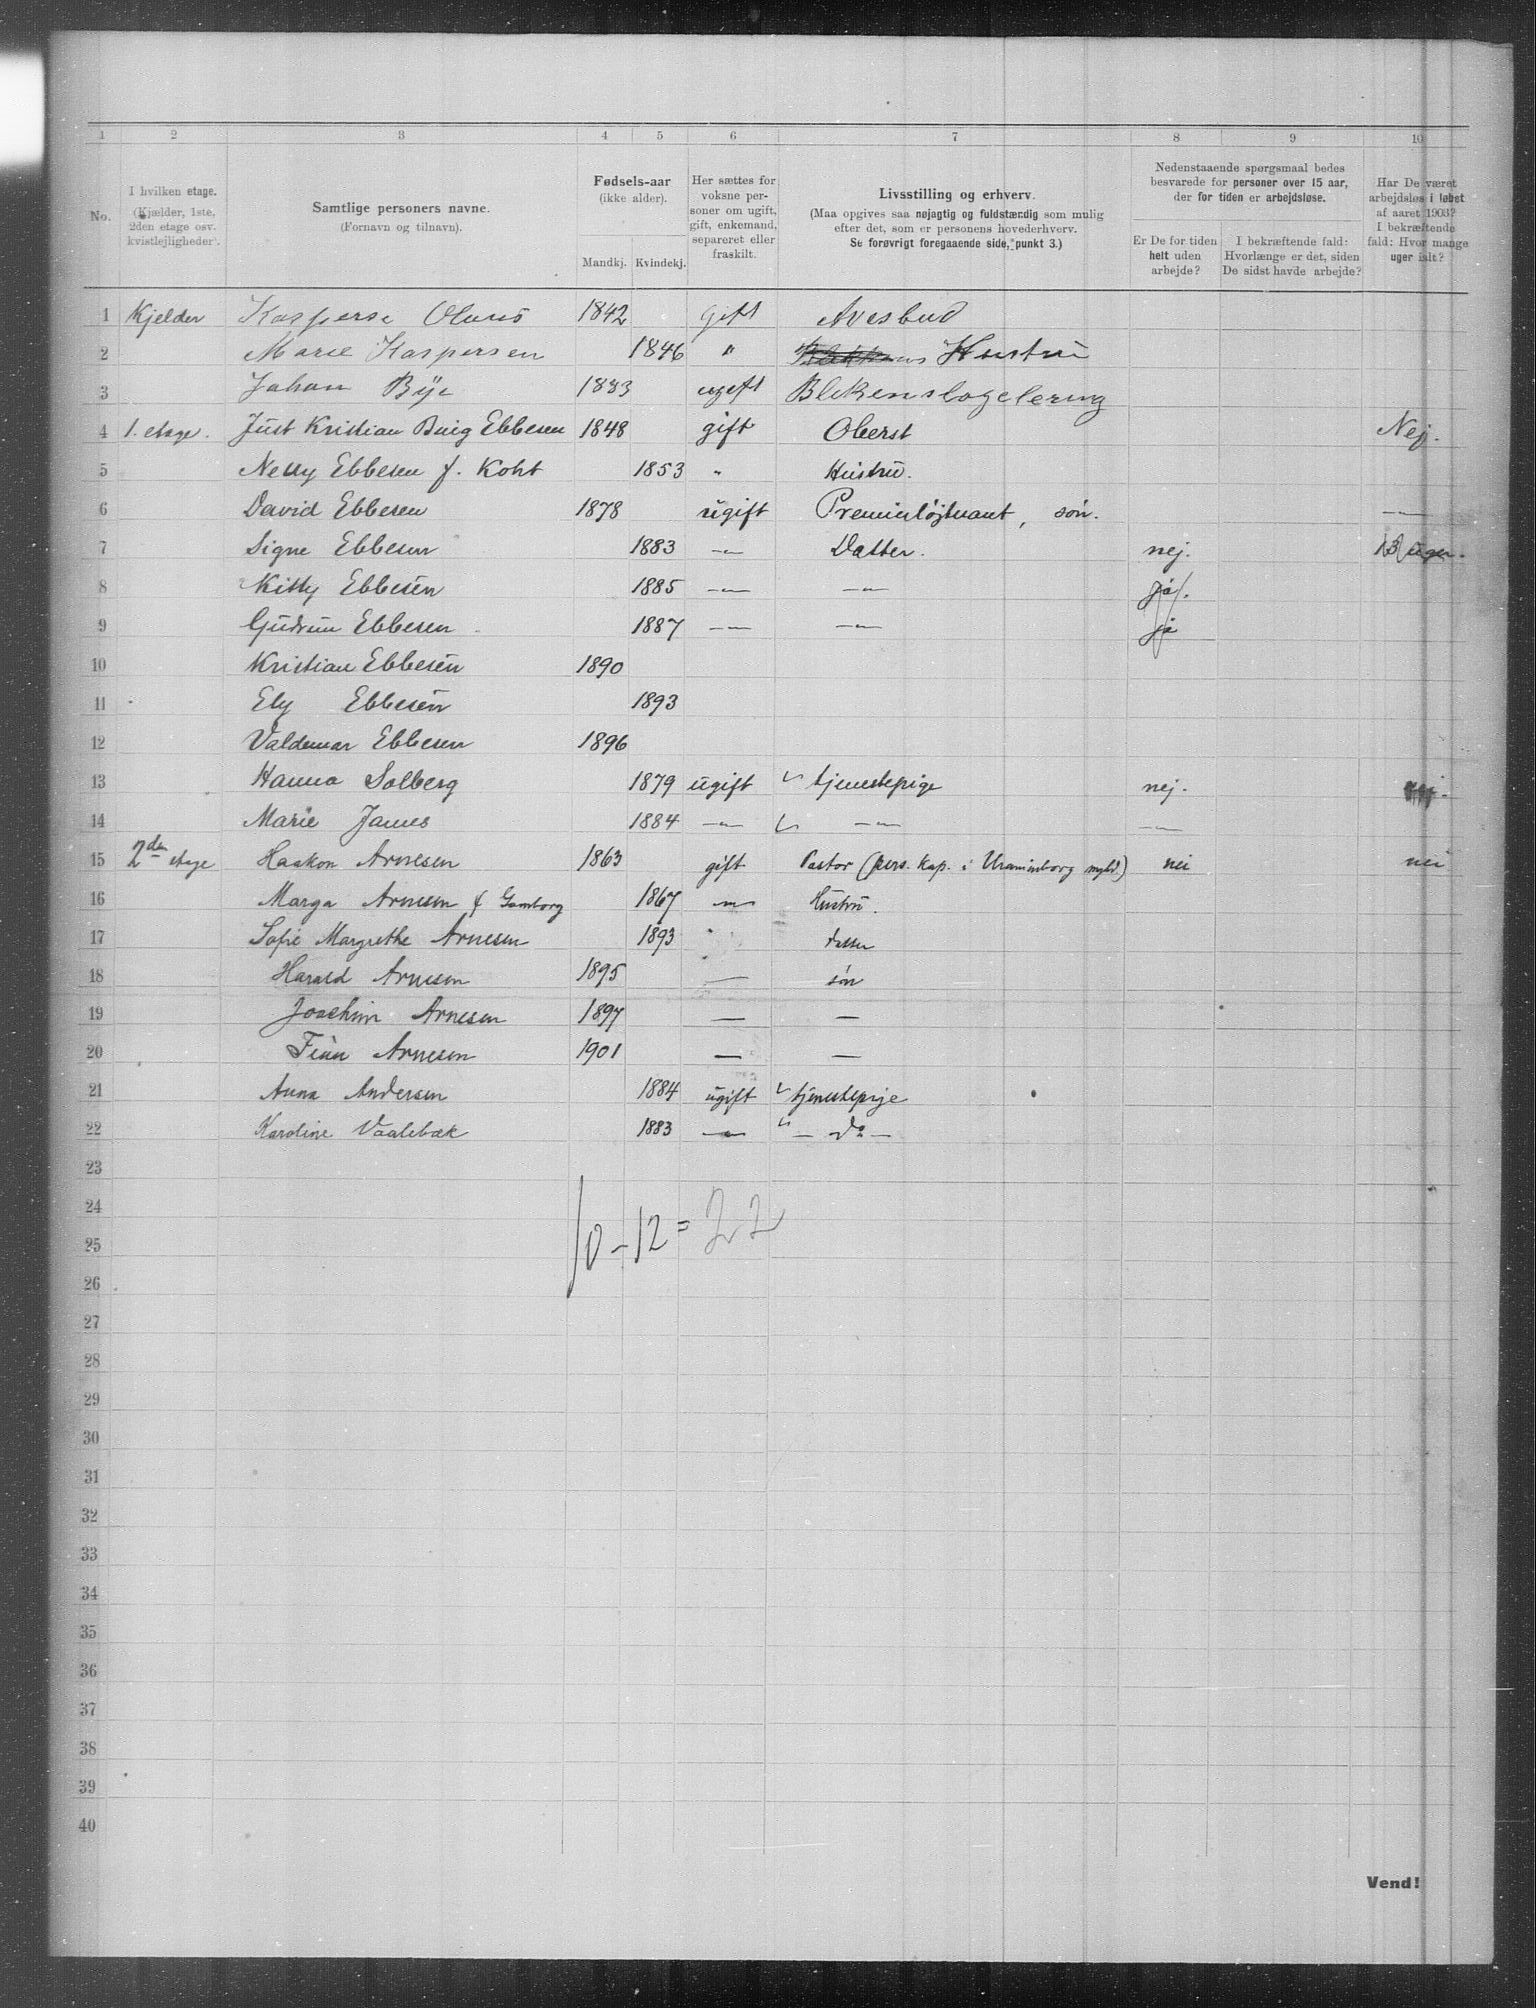 1 2 3 4 5 6 7 8 9 10
No. I hvilken etage. (Kjælder, 1ste, 2den etage osv. kvistlejligheder). Samtlige personers navne. (Fornavn og tilnavn). Fødsels-aar (ikke alder). Mandkj. Kvindekj. Her sættes for voksne personer om ugift, gift, enkemand, separeret eller fraskilt. Livsstilling og erhverv. (Maa opgives saa nøjagtig og fuldstærdig som mulig efter det, som er personens hovederhverv. Se forøvrigt foregaaende side, punkt 3.) Nedenstaaende spørgsmaal bedes besvarede for personer over 15 aar, der for tiden er arbejdsløse. Er De for tiden helt uden arbejde? I bekræftende fald: Hvorlænge er det, siden De sidst havde arbejde? Har De været arbejdsløs i løbet af aaret 1903? I bekræftende fald: Hvor mange uger ialt?
1 Kjelder Kasperse Olaus 1842 gift Avisbud
2 Marie Kaspersen 1846 " Hustru
3 Johan Bye 1883 ugift
4 1. etage. Just Kristian Ebbesen 1848 gift Oberst Nej.
5 Nelly Ebbesen f. Koht 1853 " Hustru.
6 David Ebbesen 1878 ugift Premierløjtnant, søn. —"—
7 Signe Ebbesen 1883 —"— Datter. nej. 13 uger.
8 Kitty Ebbesen 1885 —"— —"— ja.
9 Gudrun Ebbesen 1887 —"— —"— ja
10 Kristian Ebbesen 1890
11 Ely Ebbesen 1893
12 Valdemar Ebbesen 1896
13 Hanna Solberg 1879 ugift tjenestepige nej. nej.
14 Marie James 1884 —"— —"— —"—
15 2den etage Haakon Arnesen 1863 gift Pastor (pers. kap. i Uranienborg mghd.) nei nei
16 Marga Arnesen f Gamborg 1867 —"— Hustru.
17 Sofie Margrethe Arnesen 1893 " datter
18 Harald Arnesen 1895 — søn
19 Joachim Arnesen 1897 — —
20 Finn Arnesen 1901 — —
21 Anna Andersen 1884 ugift tjenestepige
22 Karoline Vaalebæk 1883 —"— — do —
23
24
10 - 12 = 22
25
26
27
28
29
30
31
32
33
34
35
36
37
38
39
40
Vend!